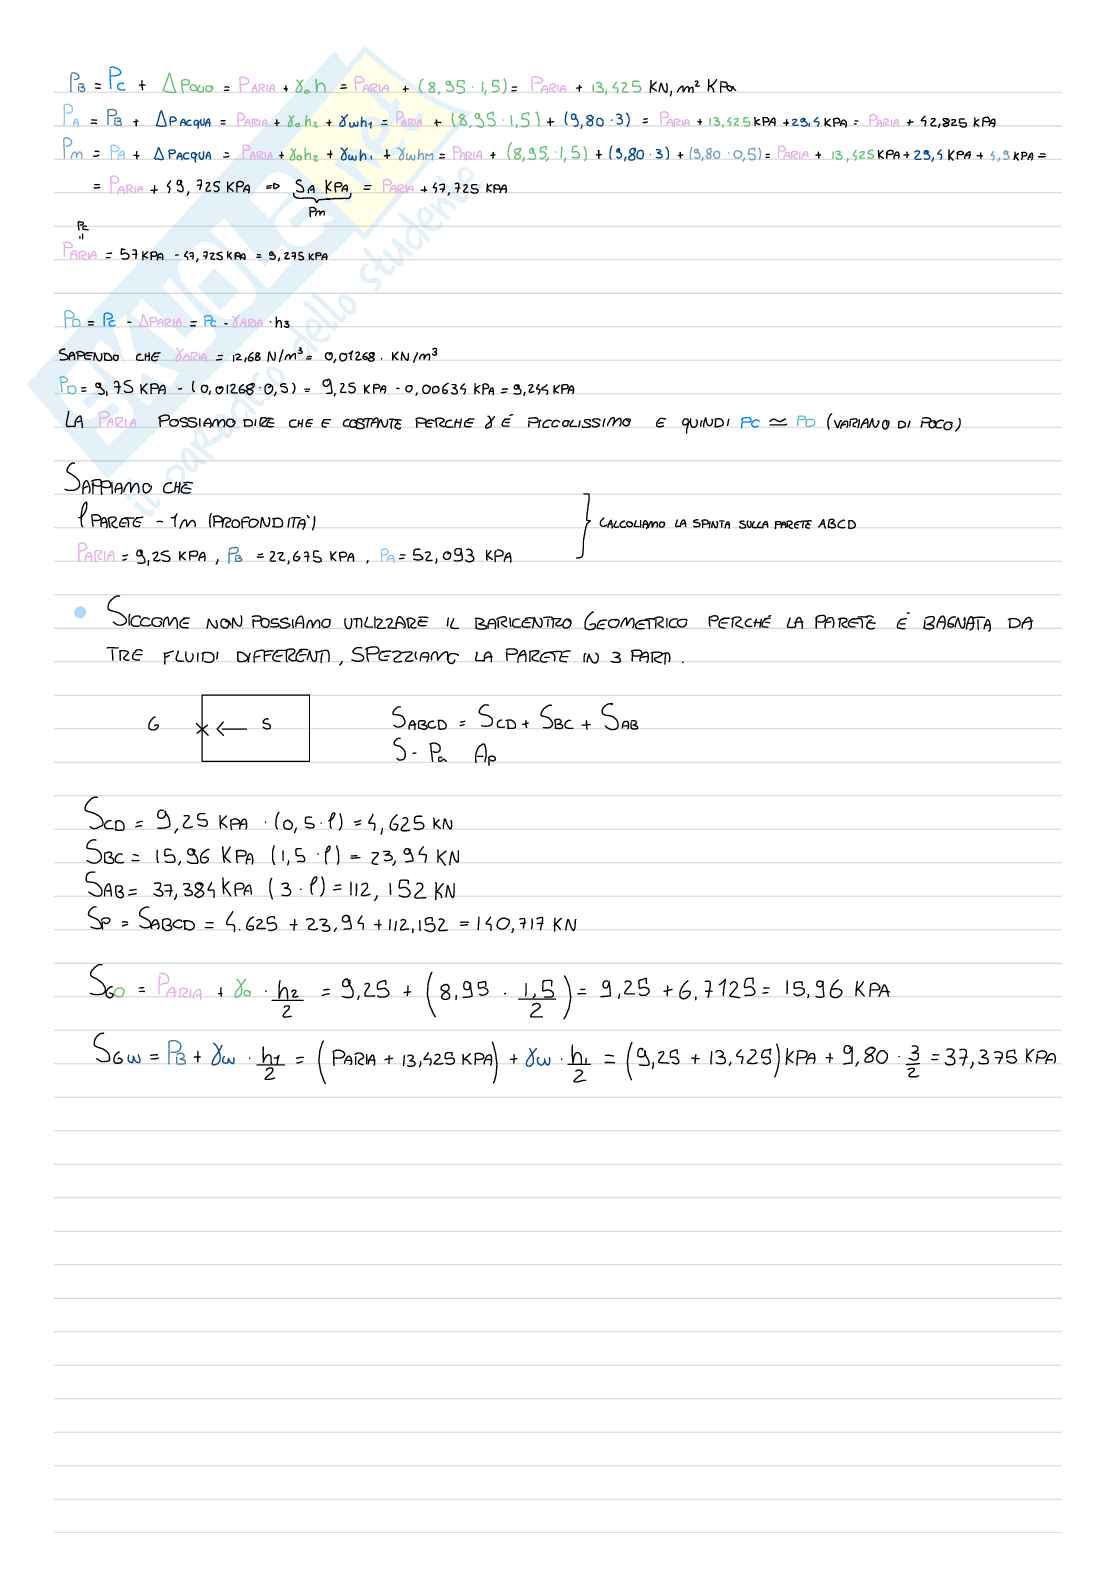 PB = PC + ΔPOLIO = PARIA + γoh = PARIA + (8,95 · 1,5) = PARIA + 13,425 KN, m² KPa
PA = PB + ΔPACQUA = PARIA + γoh2 + γwh1 = PARIA + (8,95 · 1,5) + (9,80 · 3) = PARIA + 13,425 KPA + 29,4 KPA = PARIA + 42,825 KPA
Pm = PA + ΔPACQUA = PARIA + γoh2 + γwh1 + γwhM = PARIA + (8,95 · 1,5) + (9,80 · 3) + (9,80 · 0,5) = PARIA + 13,425 KPA + 29,4 KPA + 4,9 KPA =
= PARIA + 49,725 KPA ⇒ SA KPA = PARIA + 47,725 KPA
Pm
PC
"
PARIA = 57 KPA - 47,725 KPA = 9,275 KPA
PD = PC - ΔPARIA = PC - γARIA · h3
SAPENDO CHE γARIA = 12,68 N/m³ = 0,01268 · KN/m³
PD = 9,75 KPA - (0,01268 · 0,5) = 9,25 KPA - 0,00634 KPA = 9,244 KPA
LA PARIA POSSIAMO DIRE CHE E COSTANTE PERCHE γ É PICCOLISSIMO E QUINDI PC ≃ PD (VARIANO DI POCO)
SAPPIAMO CHE
l PARETE - 1m (PROFONDITA')
CALCOLIAMO LA SPINTA SULLA PARETE ABCD
PARIA = 9,25 KPA , PB = 22,675 KPA , PA = 52,093 KPA
• SICCOME NON POSSIAMO UTILIZZARE IL BARICENTRO GEOMETRICO PERCHÉ LA PARETE É BAGNATA DA
TRE FLUIDI DIFFERENTI, SPEZZIAMO LA PARETE IN 3 PARTI.
G × ← S
SABCD = SCD + SBC + SAB
S - PG AP
SCD = 9,25 KPA · (0,5 · l) = 4,625 KN
SBC = 15,96 KPA (1,5 · l) = 23,94 KN
SAB = 37,384 KPA (3 · l) = 112,152 KN
SP = SABCD = 4.625 + 23,94 + 112,152 = 140,717 KN
SGO = PARIA + γo · h2/2 = 9,25 + (8,95 · 1,5/2) = 9,25 + 6,7125 = 15,96 KPA
SGW = PB + γw · h1/2 = (PARIA + 13,425 KPA) + γw · h1/2 = (9,25 + 13,425) KPA + 9,80 · 3/2 = 37,375 KPA
SKUOLA.net
il paradiso dello studente